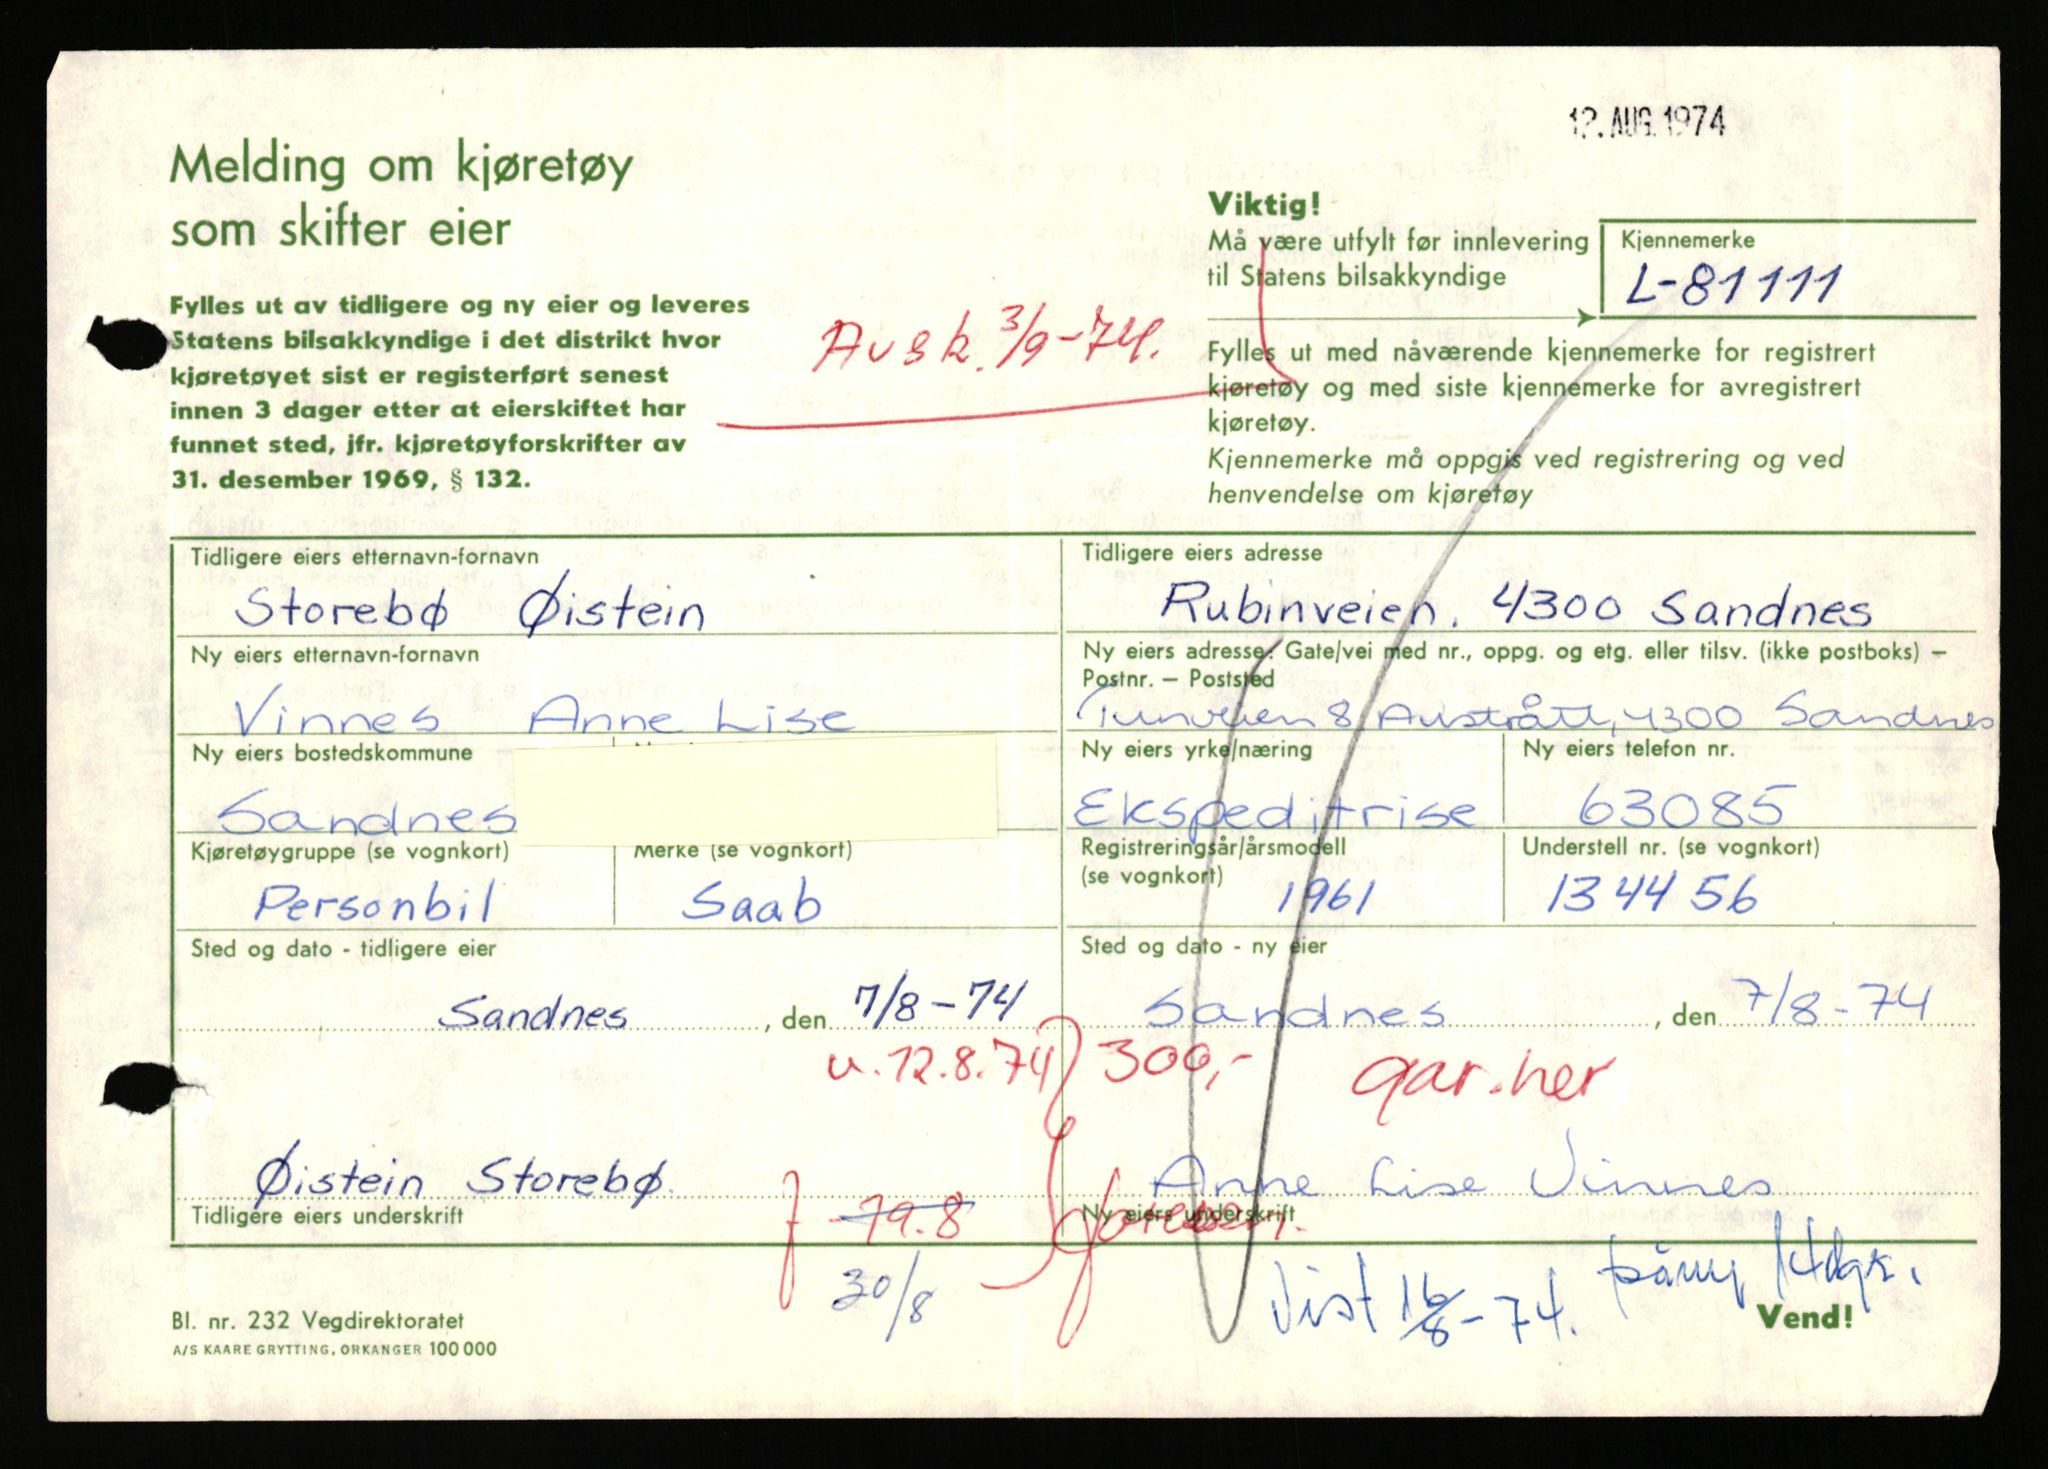 12. AUG. 1974
Melding om kjøretøy
som skifter eier
Fylles ut av tidligere og ny eier og leveres
Statens bilsakkyndige i det distrikt hvor
kjøretøyet sist er registerført senest
innen 3 dager etter at eierskiftet har
funnet sted, jfr. kjøretøyforskrifter av
31. desember 1969, § 132.
Avsk. 3/9-74.
Viktig!
Må være utfylt før innlevering
til Statens bilsakkyndige
Kjennemerke
L-81111
Fylles ut med nåværende kjennemerke for registrert
kjøretøy og med siste kjennemerke for avregistrert
kjøretøy.
Kjennemerke må oppgis ved registrering og ved
henvendelse om kjøretøy
Tidligere eiers etternavn-fornavn
Storebø Øistein
Tidligere eiers adresse
Rubinveien. 4300 Sandnes
Ny eiers etternavn-fornavn
Vinnes Anne Lise
Ny eiers adresse: Gate/vei med nr., oppg. og etg. eller tilsv. (ikke postboks) –
Postnr. – Poststed
Tunveien 8, Austrått, 4300 Sandnes
Ny eiers bostedskommune
Sandnes
Ny eiers yrke/næring
Ekspeditrise
Ny eiers telefon nr.
63085
Kjøretøygruppe (se vognkort)
Personbil
Merke (se vognkort)
Saab
Registreringsår/årsmodell
(se vognkort)
1961
Understell nr. (se vognkort)
134456
Sted og dato - tidligere eier
Sandnes, den 7/8-74
Sted og dato - ny eier
Sandnes, den 7/8-74
u. 12.8.74 300,- gar.her
Øistein Storebø
Tidligere eiers underskrift
Anne Lise Vinnes
Ny eiers underskrift
f 19.8
30/8
Vist 16/8-74.
Bl. nr. 232 Vegdirektoratet
A/S KAARE GRYTTING, ORKANGER 100 000
Vend!